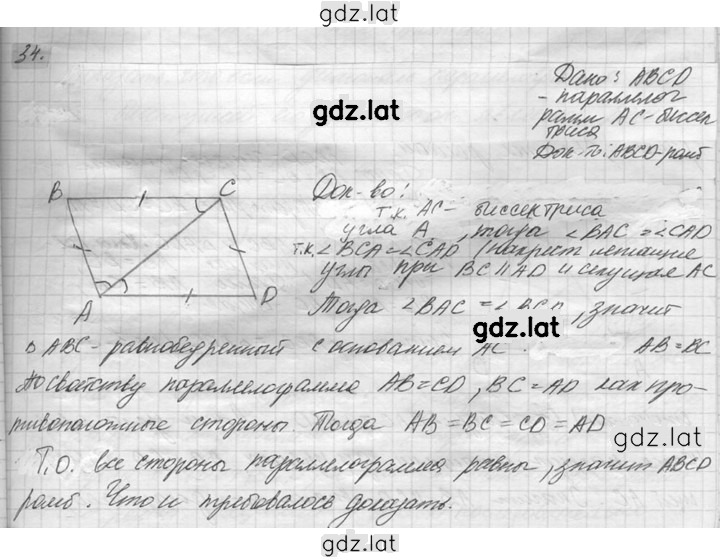 gdz.lat
34.
Дано: ABCD
- параллелог
рамм AC-биссек
триса
Док-ть: ABCD-ромб
gdz.lat
B C
A D
Док-во:
т.к. AC- биссектриса
угла A, тогда ∠BAC = ∠CAD
т.к. ∠BCA = ∠CAD (накрест лежащие
углы при BC||AD и секущая AC
Тогда ∠BAC = ∠BCA, значит
gdz.lat
△ABC - равнобедренный с основанием AC. AB=BC
По свойству параллелограмма AB=CD, BC=AD как про-
тивоположные стороны. Тогда AB=BC=CD=AD
gdz.lat
Т.О. все стороны параллелограмма равны, значит ABCD
ромб. Что и требовалось доказать.
gdz.lat